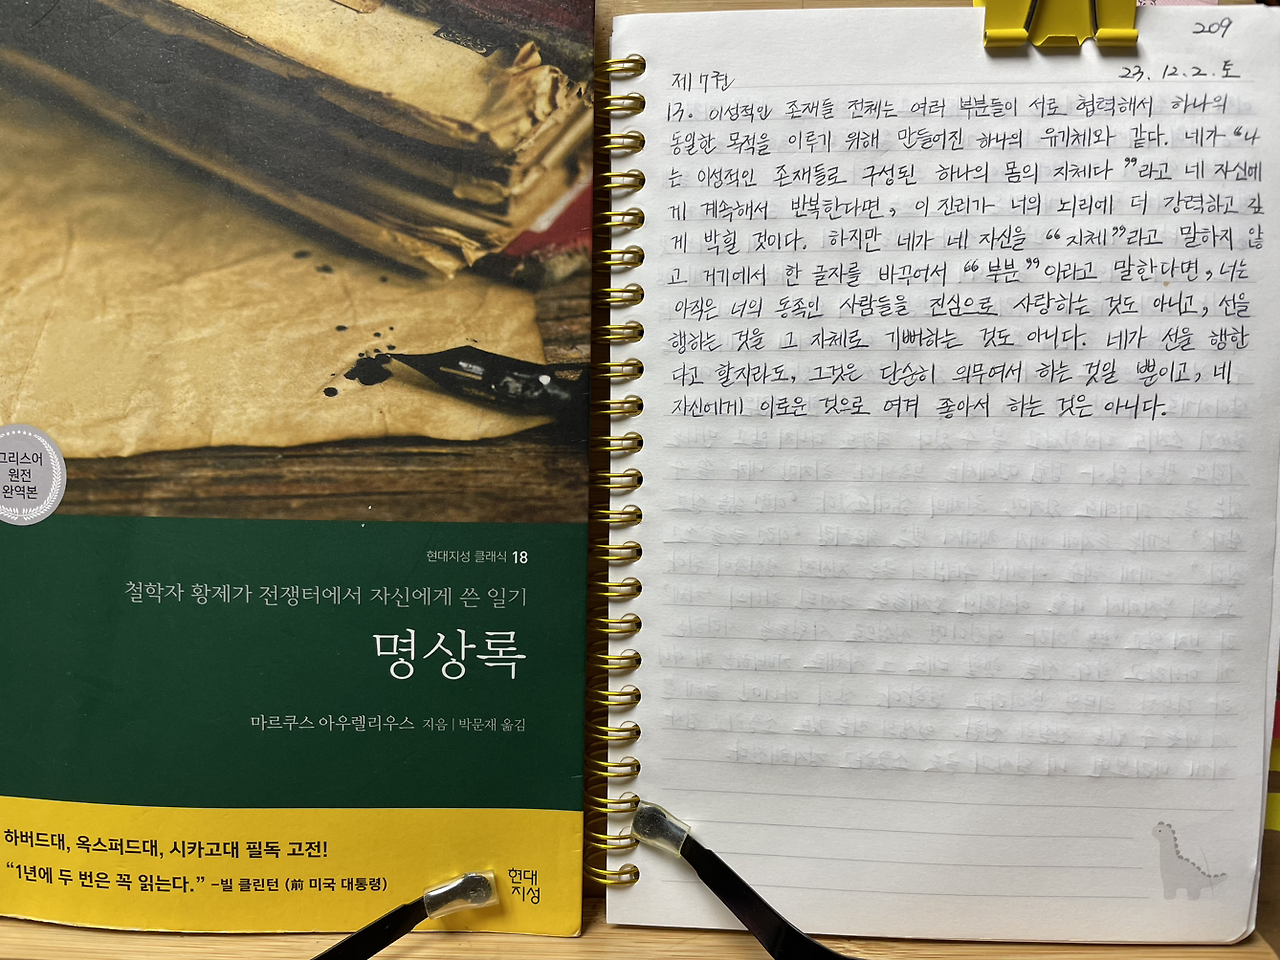 그리스어
원전
완역본
현대지성 클래식 18
철학자 황제가 전쟁터에서 자신에게 쓴 일기
명상록
마르쿠스 아우렐리우스 지음 | 박문재 옮김
하버드대, 옥스퍼드대, 시카고대 필독 고전!
“1년에 두 번은 꼭 읽는다.” –빌 클린턴 (前 미국 대통령)
현대
지성
209
23. 12. 2. 토
제 7권
13. 이성적인 존재들 전체는 여러 부분들이 서로 협력해서 하나의
동일한 목적을 이루기 위해 만들어진 하나의 유기체와 같다. 네가 “나
는 이성적인 존재들로 구성된 하나의 몸의 지체다”라고 네 자신에
게 계속해서 반복한다면, 이 진리가 너의 뇌리에 더 강력하고 깊
게 박힐 것이다. 하지만 네가 네 자신을 “지체”라고 말하지 않
고 거기에서 한 글자를 바꾸어서 “부분”이라고 말한다면, 너는
아직은 너의 동족인 사람들을 진심으로 사랑하는 것도 아니고, 선을
행하는 것을 그 자체로 기뻐하는 것도 아니다. 네가 선을 행한
다고 할지라도, 그것은 단순히 의무여서 하는 것일 뿐이고, 네
자신에게 이로운 것으로 여겨 좋아서 하는 것은 아니다.